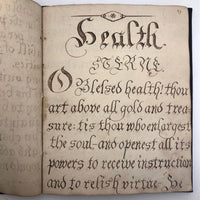 Health.
STERNE.
O Blessed health! thou
art above all gold and trea-
sure: tis thou who enlargest
the soul- and openest all its
powers to receive instruction
and to relish virtue &c